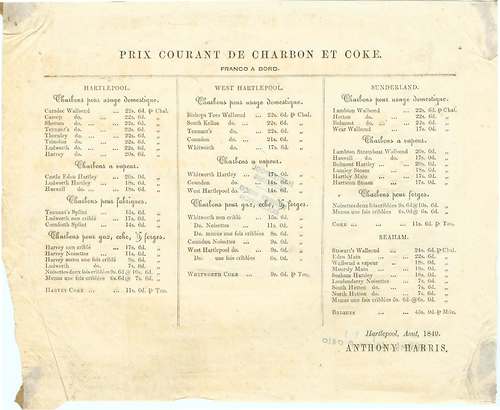 PRIX COURANT DE CHARBON ET COKE.
FRANCO A BORD.
HARTLEPOOL.
Charbons pour usage domestique.
Caradoc Wallsend ... 22s. 6d. ⅌ Chal.
Cassop do. ... ... 22s. 6d. „
do. ... ... 22s. 6d. „
Tennant's do. ... ... 22s. 6d. „
Thornley do. ... ... 22s. 6d. „
Trimdon do. ... ... 22s. 6d. „
Ludworth do. ... ... 22s. 6d. „
Harvey do. ... ... 20s. 6d. „
Charbons a vapeur.
Castle Eden Hartley ... 20s. 0d. „
Ludworth Hartley ... 18s. 0d. „
Haswell do. ... 18s. 0d. „
Charbons pour fabriques.
Tennant's Splint ... 15s. 0d. „
Ludworth non criblé ... 17s. 0d. „
Cornforth Splint ... 14s. 6d. „
Charbons pour gaz, coke, & forges.
Harvey non criblé ... 17s. 0d. „
Harvey Noisettes ... 11s. 0d. „
Harvey menu une fois criblé 9s. 6d. „
Ludworth do. 7s. 6d. „
Noisettes deux fois criblées 9s. 6d @ 10s. 6d. „
Menus une fois criblés 6s. 6d @ 7s. 6d. „
HARVEY COKE ... ... 11s. 0d. ⅌ Ton.
WEST HARTLEPOOL.
Charbons pour usage domestique.
Bishops Tees Wallsend ... 22s. 6d. ⅌ Chal.
South Kelloe do. ... 22s. 6d. „
Tennant's do. ... 22s. 6d. „
Coundon do. ... 21s. 6d. „
Whitworth do. ... 17s. 6d. „
Charbons a vapeur.
Whitworth Hartley ... 17s. 0d. „
Coundon do. ... 14s. 6d. „
West Hartlepool do. ... 14s. 6d. „
Charbons pour gaz, coke, & forges.
Whitworth non criblé ... 15s. 0d. „
Do. Noisettes ... 11s. 0d. „
Do. menus une fois criblés 9s. 6d. „
Coundon Noisettes ... 9s. 0d. „
West Hartlepool do. ... 9s. 0d. „
Do. menus une fois criblés 6s. 6d. „
WHITWORTH COKE ... 9s. 0d. ⅌ Ton.
SUNDERLAND.
Charbons pour usage domestique.
Lambton Wallsend ... 22s. 6d. ⅌ Chal.
Hetton do. ... 22s. 6d. „
Belmont do. ... 22s. 0d. „
Wear Wallsend ... 17s. 0d. „
Charbons a vapeur.
Lambton Steamboat Wallsend 20s. 0d. „
Haswell do. do. 17s. 0d. „
Belmont Hartley ... 20s. 0d. „
Lumley Steam ... 18s. 0d. „
Hartley Main ... 17s. 0d. „
Harraton Steam ... 17s. 0d. „
Charbons pour forges.
Noisettes deux fois criblées
Menus une fois criblés
COKE ... ... 11s. 0d. ⅌ Ton.
SEAHAM.
Stewart's Wallsend ... 24s. 6d. ⅌ Chal.
Eden Main ... 22s. 6d. „
Wallsend a vapeur ... 18s. 0d. „
18s. 0d. „
Seaham Hartley ... 18s. 0d. „
Londonderry Noisettes ... 7s. 6d. „
South Hetton do. ... 7s. 6d. „
North Hetton do. ... 7s. 0d. „
Menus une fois criblés
⅌ Mille.
Hartlepool, Aout, 1849.
ANTHONY HARRIS.